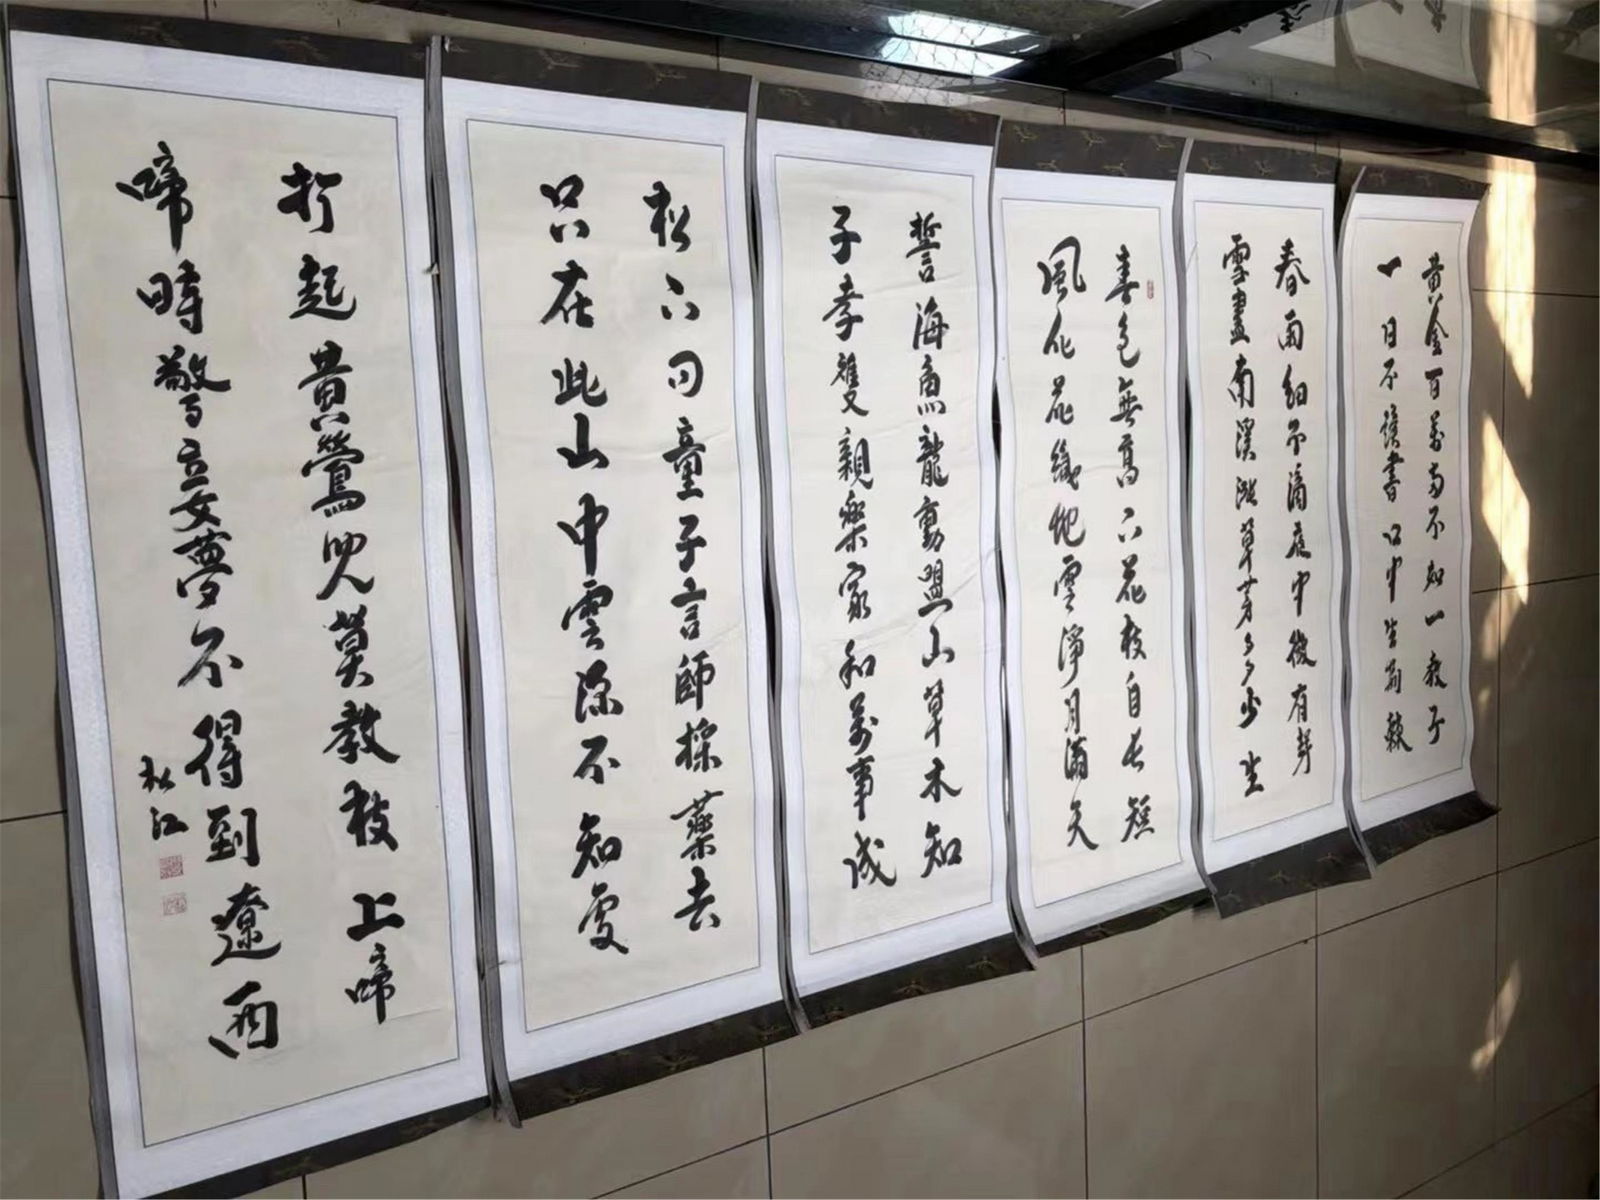 黄金百萬两不如一教子
一日不讀書口中生荊棘
春雨細不滴夜中微有聲
雪盡南溪漲草芽多少生
春色無高下花枝自長短
風化花織地雲淨月滿天
誓海魚龍動盟山草木知
子孝雙親樂家和萬事成
松下问童子言師採藥去
只在此山中雲深不知處
打起黄鶯兒莫教枝上啼
啼時驚妾夢不得到遼西
江